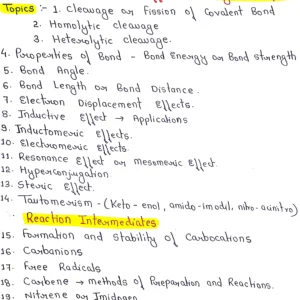 Topics :- 1. Cleavage or Fission of Covalent Bond
2. Homolytic cleavage
3. Heterolytic cleavage.
4. Properties of Bond - Bond Energy or Bond strength
5. Bond Angle.
6. Bond Length or Bond Distance.
7. Electron Displacement Effects.
8. Inductive Effect → Applications
9. Inductomeric Effects.
10. Electromeric Effects.
11. Resonance Effect or mesomeric Effect.
12. Hyperconjugation.
13. Steric Effect.
14. Tautomerism - (Keto-enol, amido-imodil, nitro-acinitro)
Reaction Intermediates
15. Formation and Stability of Carbocations
16. Carbanions
17. Free Radicals
18. Carbene → methods of Preparation and Reactions.
19. Nitrene or Imidogen